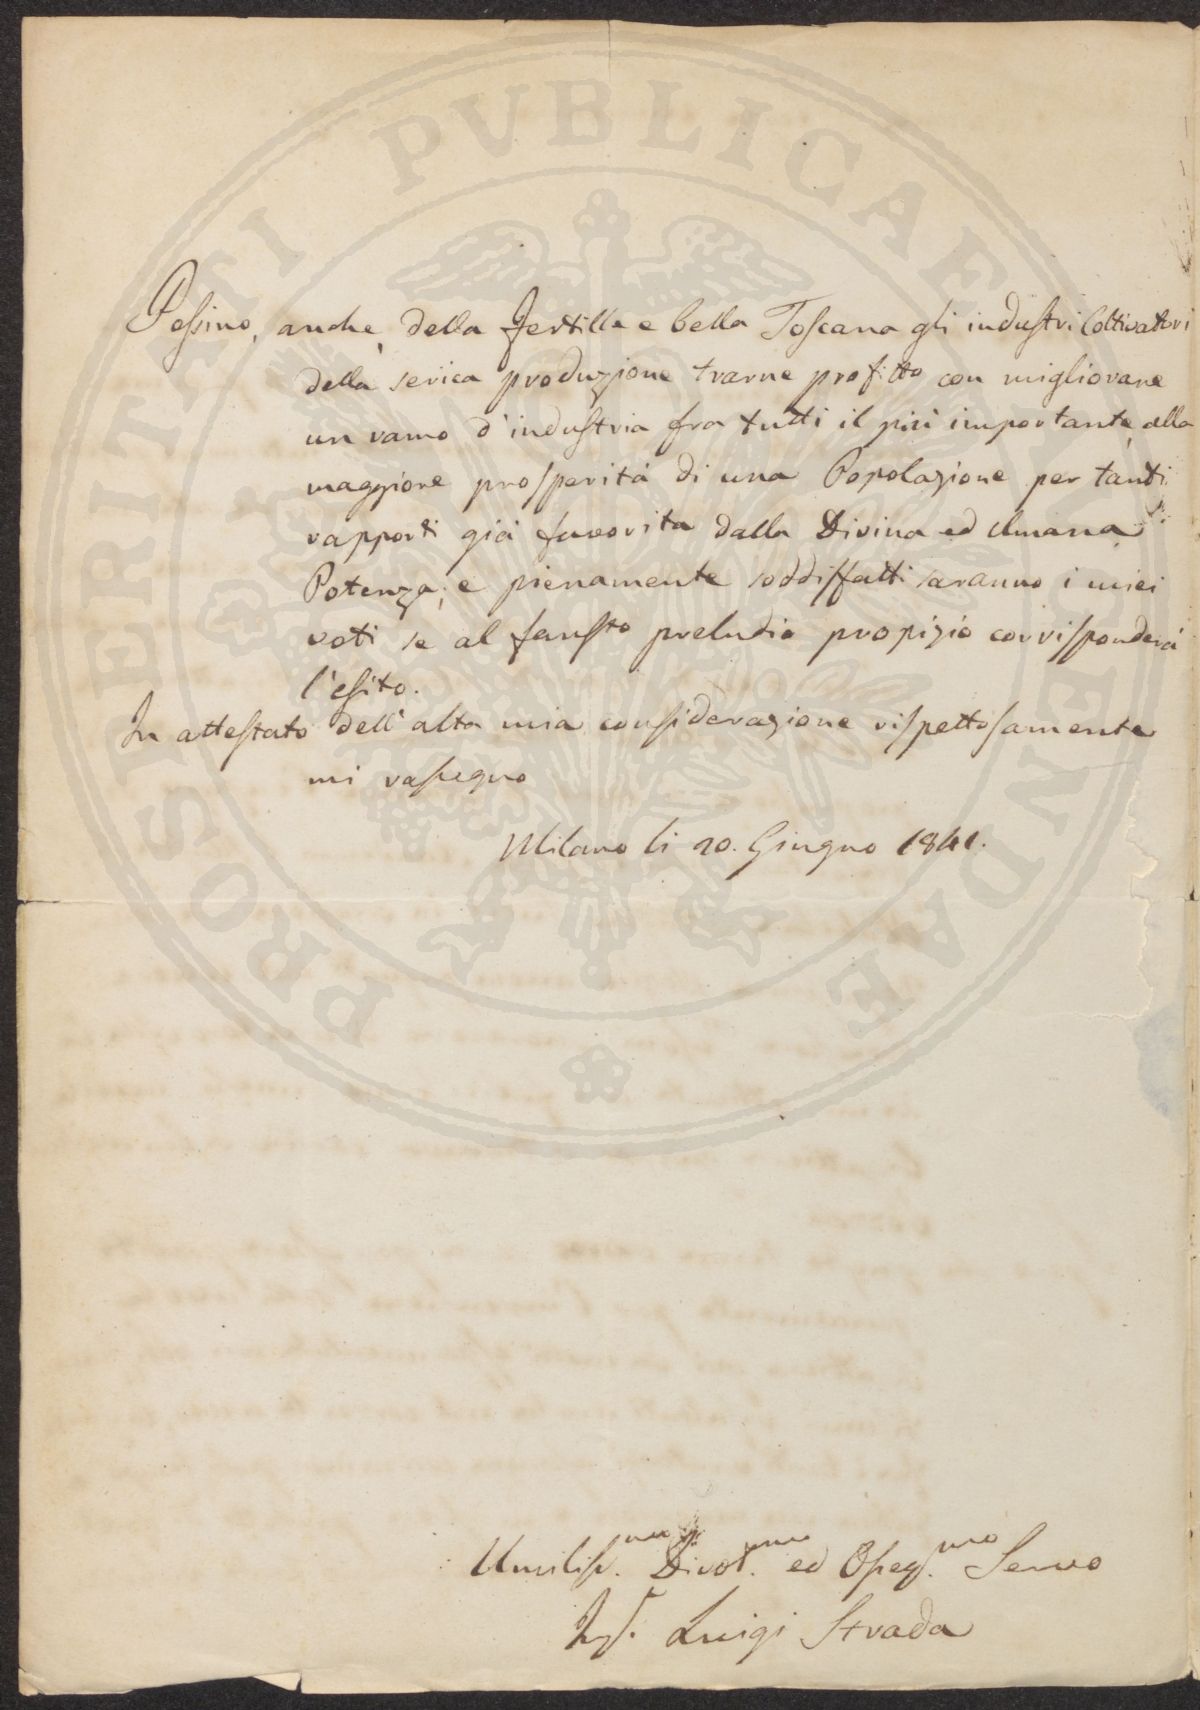 Possino, anche, della fertille e bella Toscana gli industri Coltivatori
della serica produzione trarne profitto con migliorare
un ramo d'industria fra tutti il più importante alla
maggiore prosperità di una Popolazione per tanti
rapporti già favorita dalla Divina ed Umana
Potenza; e pienamente soddisfatti saranno i miei
voti se al fausto preludio propizio corrisponderà
l'esito.
In attestato dell'alta mia considerazione rispettosamente
mi rassegno
Milano li 20. Giugno 1841.
Umiliss.mo Divot.mo ed Osseq.mo Servo
Ing. Luigi Strada
PROSPERITATI PVBLICAE AVGENDAE